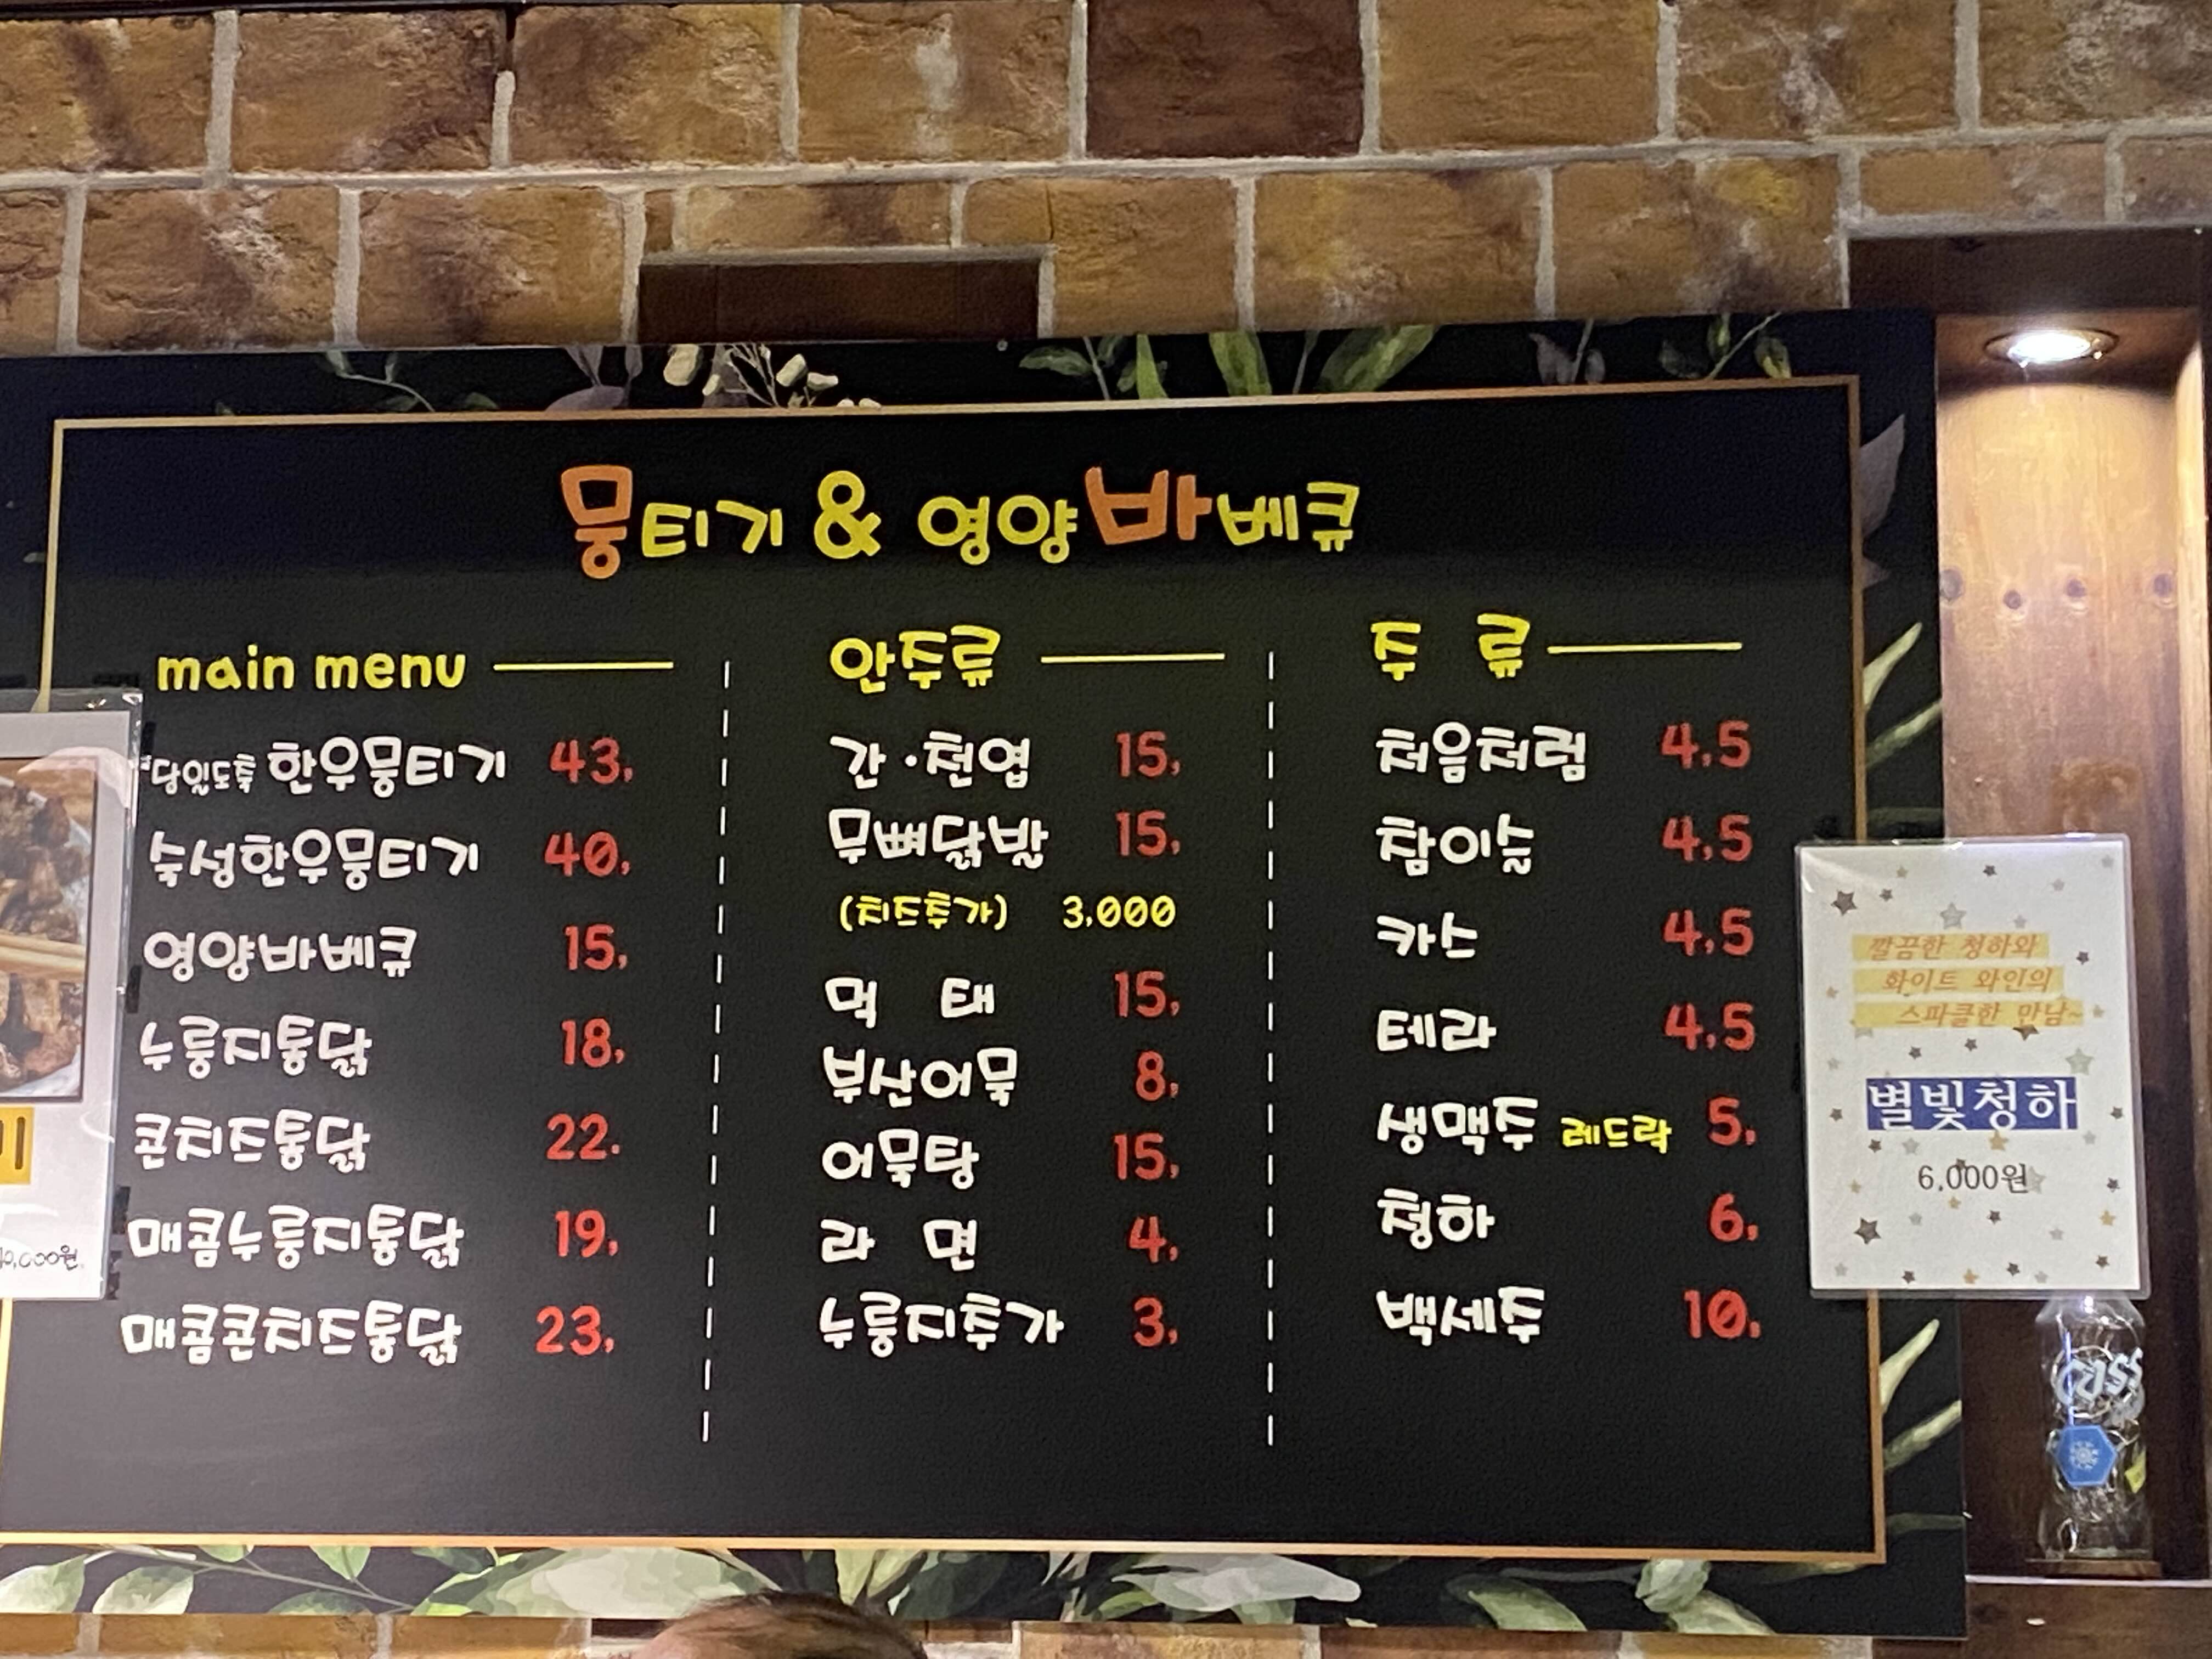 뭉티기 & 영양바베큐
main menu
"당일도축 한우뭉티기 43,
숙성한우뭉티기 40,
영양바베큐 15,
누룽지통닭 18,
콘치즈통닭 22.
매콤누룽지통닭 19,
매콤콘치즈통닭 23,
안주류
간·천엽 15,
무뼈닭발 15,
(치즈추가) 3,000
먹 태 15,
부산어묵 8,
어묵탕 15,
라 면 4,
누룽지추가 3,
주 류
처음처럼 4,5
참이슬 4,5
카스 4,5
테라 4,5
생맥주 레드락 5,
청하 6,
백세주 10,
깔끔한 청하와
화이트 와인의
스파클한 만남~
별빛청하
6,000원
cass